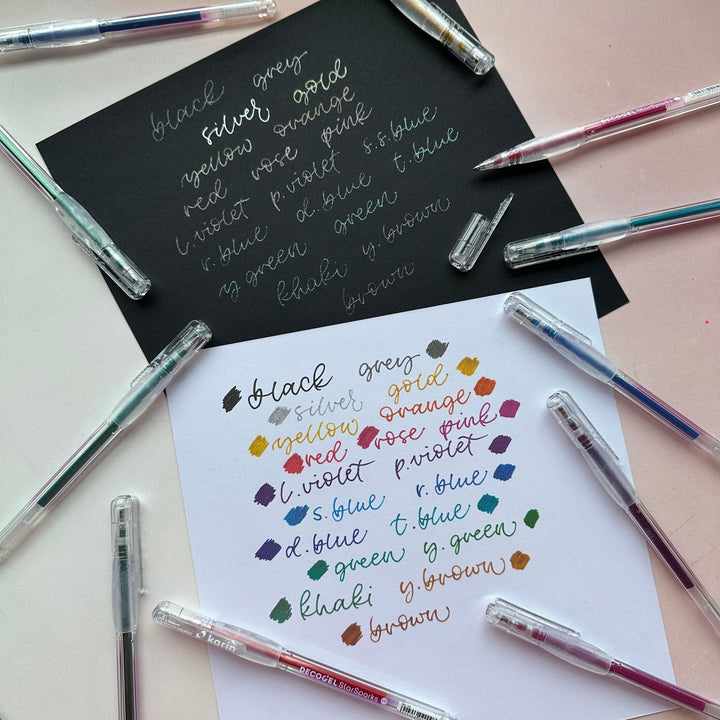 black grey
silver gold
yellow orange
red rose pink
l.violet p.violet s.s.blue
r.blue d.blue t.blue
y.green green
khaki y.brown
brown
DECOGEL StarSparks
black grey
silver gold
yellow orange
red rose pink
l.violet p.violet
s.blue r.blue
d.blue t.blue
green y.green
khaki y.brown
brown
karin
DECOGEL StarSparks